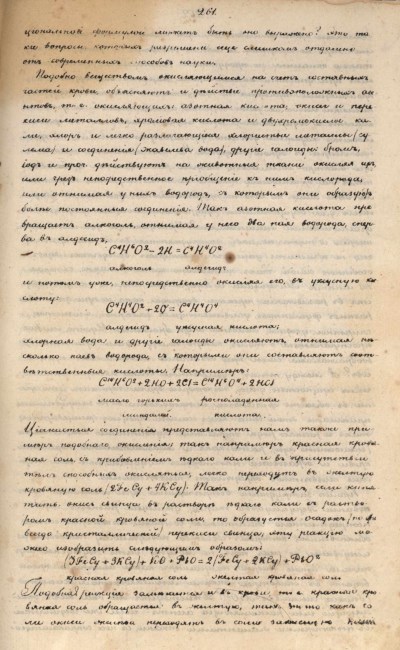 261.
можетъ быть оно выражено? это та
кіе вопросы, которыхъ разрѣшеніе еще слишкомъ отдалено
отъ современныхъ способовъ науки.
Подобно веществамъ окисляющимся на счетъ составныхъ
частей крови объясняютъ и дѣйствіе противоположныхъ
т. е. окисляющихъ: азотная кислота, окиси и пере
киси металловъ, хромовая кислота и двухромокислое ка
ли, хлоръ и легко разлагающіяся хлористые металлы (су
лема) и соединенія (Жавелева вода), другіе галоиды: бромъ,
іодъ и проч. дѣйствуютъ на животныя ткани окисляя ихъ
или чрезъ непосредственное пріобщеніе къ нимъ кислорода,
или отнимая у нихъ водородъ, съ которымъ они образуютъ
болѣе постоянныя соединенія. Такъ азотная кислота пре
вращаетъ алкоголь, отнимая у него два пая водорода, спер
ва въ алдегидъ,
C⁴H⁶O² – 2H = C⁴H⁴O²
алкоголь алдегидъ
и потомъ уже, непосредственно окисляя его, въ уксусную ки
слоту:
C⁴H⁴O² + 2O = C⁴H⁴O⁴
алдегидъ уксусная кислота;
хлорная вода и другіе галоиды окисляютъ, отнимая нѣ
сколько паевъ водорода, съ которымъ они составляютъ соот
вѣтственныя кислоты. Напримѣръ:
C¹⁴H⁶O² + 2HO + 2Cl = C¹⁴H⁶O⁴ + 2HCl
масло горькихъ
миндалей кислота.
Ціанистыя соединенія представляютъ намъ также при
мѣръ подобнаго окисленія; такъ напримѣръ красная кровя
ная соль съ прибавленіемъ ѣдкаго кали и въ присутствіи
тѣлъ способныхъ окисляться, легко переходитъ въ желтую
кровяную соль (2FeCy + 4KCy). Такъ напримѣръ если
окись свинца въ растворѣ ѣдкаго кали съ раство
ромъ красной кровяной соли, то образуется осадокъ (
всегда кристаллическій) перекиси свинца, эту реакцію мо
жно изобразить слѣдующимъ образомъ:
(3FeCy + 3KCy) + KO + PbO = 2(FeCy + 2KCy) + PbO²
красная кровяная соль желтая кровяная соль
Подобная реакція замѣчается и въ крови, т. е. красная кро
вяная соль обращается въ желтую, точно какъ со
ли окиси желѣза переходятъ въ соли закиси, но